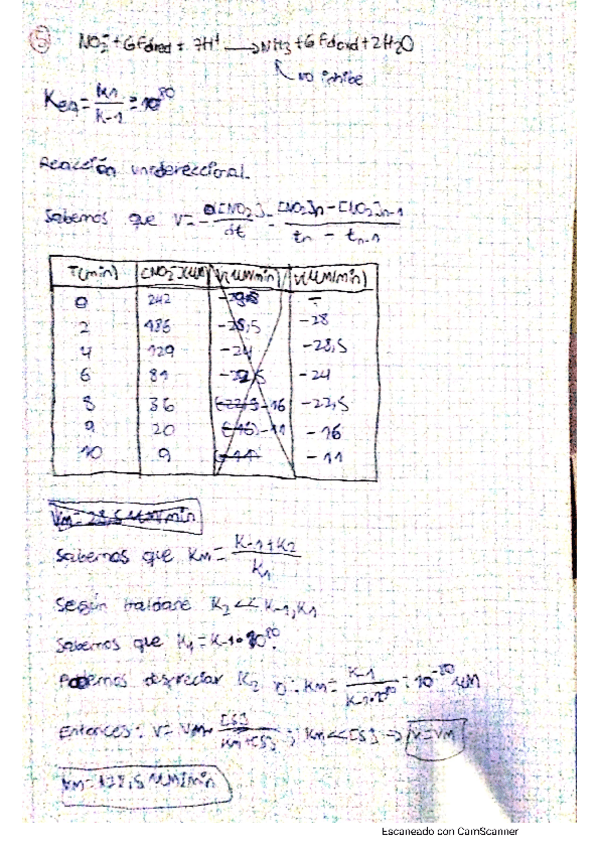 5 NO₂⁻ + 6Fdred + 7H⁺ → NH₃ + 6Fdoxd + 2H₂O
↖ No inhibe
Keq = k1/k-1 = 10⁸⁰
Reacción unidereccional.
Sabemos que V = - d[NO₂]/dt = [NO₂]n - [NO₂]n-1 / tn - tn-1
T(min) [NO₂⁻](μM) V(μM/min) V(μM/min)
0 242 -
2 186 -28,5 -28
4 129 -24 -28,5
6 81 -22,5 -24
8 36 -16 -22,5
9 20 -11 -16
10 9 -11
Vm = 28,5 μM/min
Sabemos que Km = K-1+K2/K1
Según Haldane K2 << K-1, K1
Sabemos que K1 = K-1·10⁸⁰.
Podemos despreciar K2 Km = K-1/K-1·10⁸⁰ = 10⁻⁸⁰ μM
Entonces: V = Vm· [S]/Km+[S] ; Km << [S] → V=Vm
Vm = 28,5 μM/min
Escaneado con CamScanner